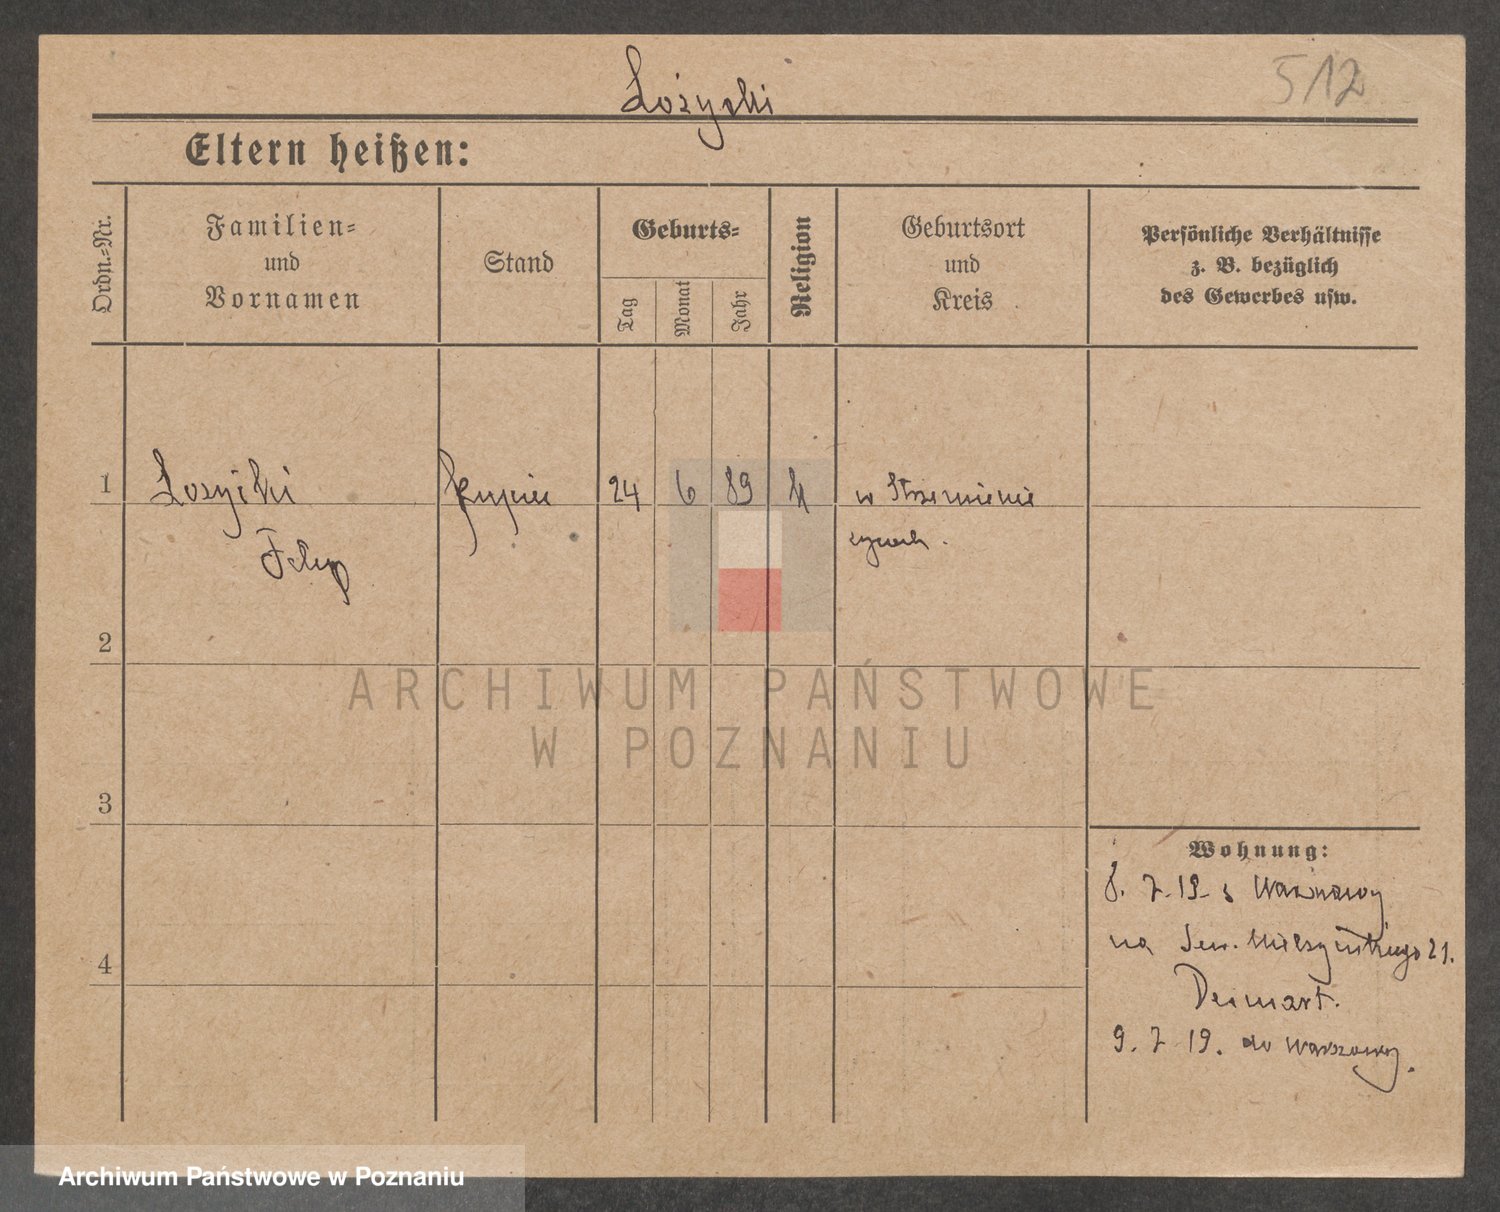 Łożycki
512
Eltern heißen:
Ordn.-Nr.
Familien-
und
Vornamen
Stand
Geburts-
Tag
Monat
Jahr
Religion
Geburtsort
und
Kreis
Persönliche Verhältnisse
z. B. bezüglich
des Gewerbes usw.
1
Łozycki
kupiec
24
6
89
k
w Strzemie
Filip
2
3
4
ARCHIWUM PAŃSTWOWE
W POZNANIU
Wohnung:
8. 7. 19 z Warszawy
na Sew. Mielżyńskiego 21.
9. 7 19. do Warszawy.
Archiwum Państwowe w Poznaniu